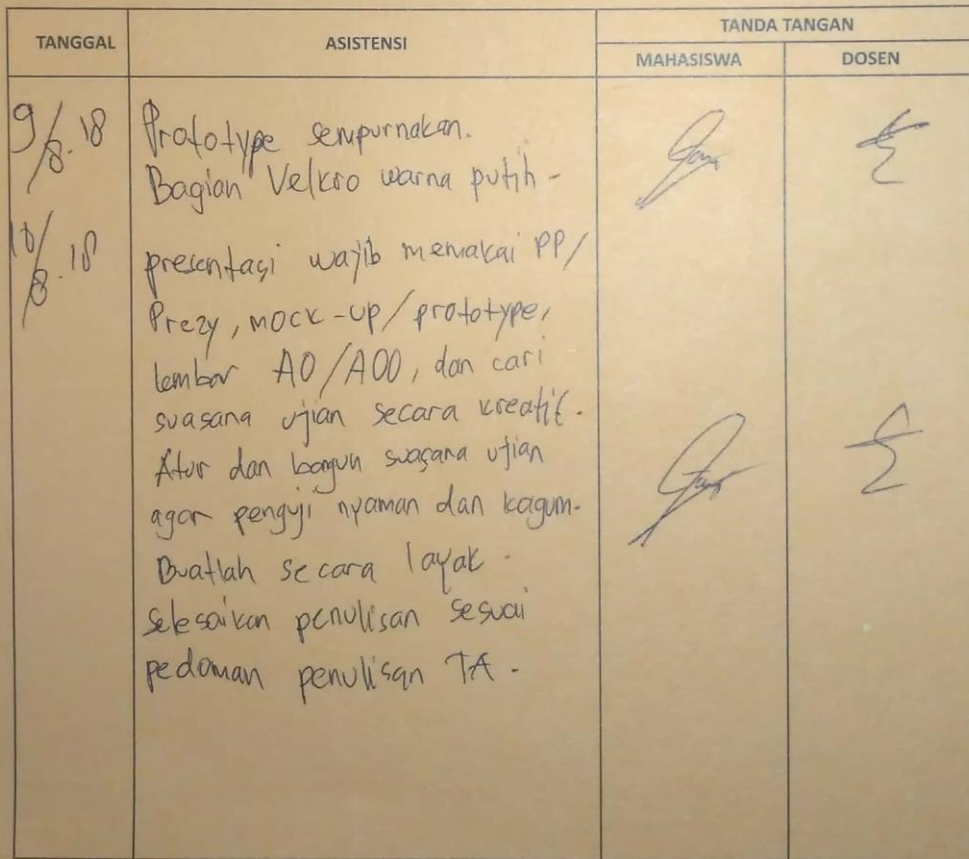 TANGGAL
ASISTENSI
TANDA TANGAN
MAHASISWA
DOSEN
9/8.18
Prototype sempurnakan.
Bagian Velkro warna putih-
10/8.18
presentasi wajib memakai PP/
Prezy, mock-up/prototype,
lembar A0/A00, dan cari
suasana ujian secara kreatif.
Atur dan bangun suasana ujian
agar penguji nyaman dan kagum.
Buatlah secara layak.
selesaikan penulisan sesuai
pedoman penulisan TA.